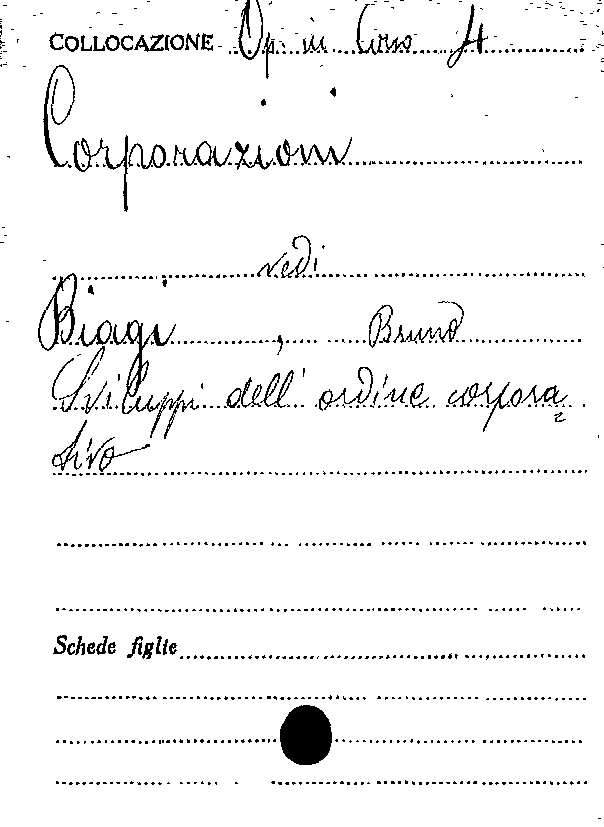 COLLOCAZIONE Op. in Corso 4
Corporazioni
vedi
Biagi, Bruno
Sviluppi dell'ordine corpora=
tivo
Schede figlie